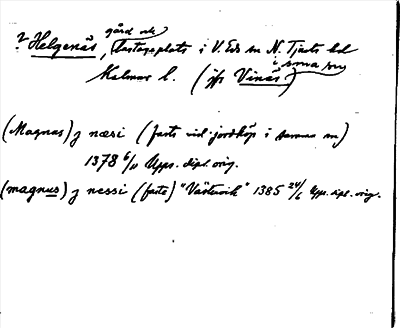 ? Helgenäs, gård och lastageplats i V. Eds sn N. Tjusts hd
Kalmar l. (jfr Vinäs i sma sn)
(Magnus) j næsi (faste vid jordköp i samma sn)
1378 6/11 Upps. dipl. orig.
(magnus) j nessi (faste) "Västervik" 1385 24/6 Upps. dipl. orig.